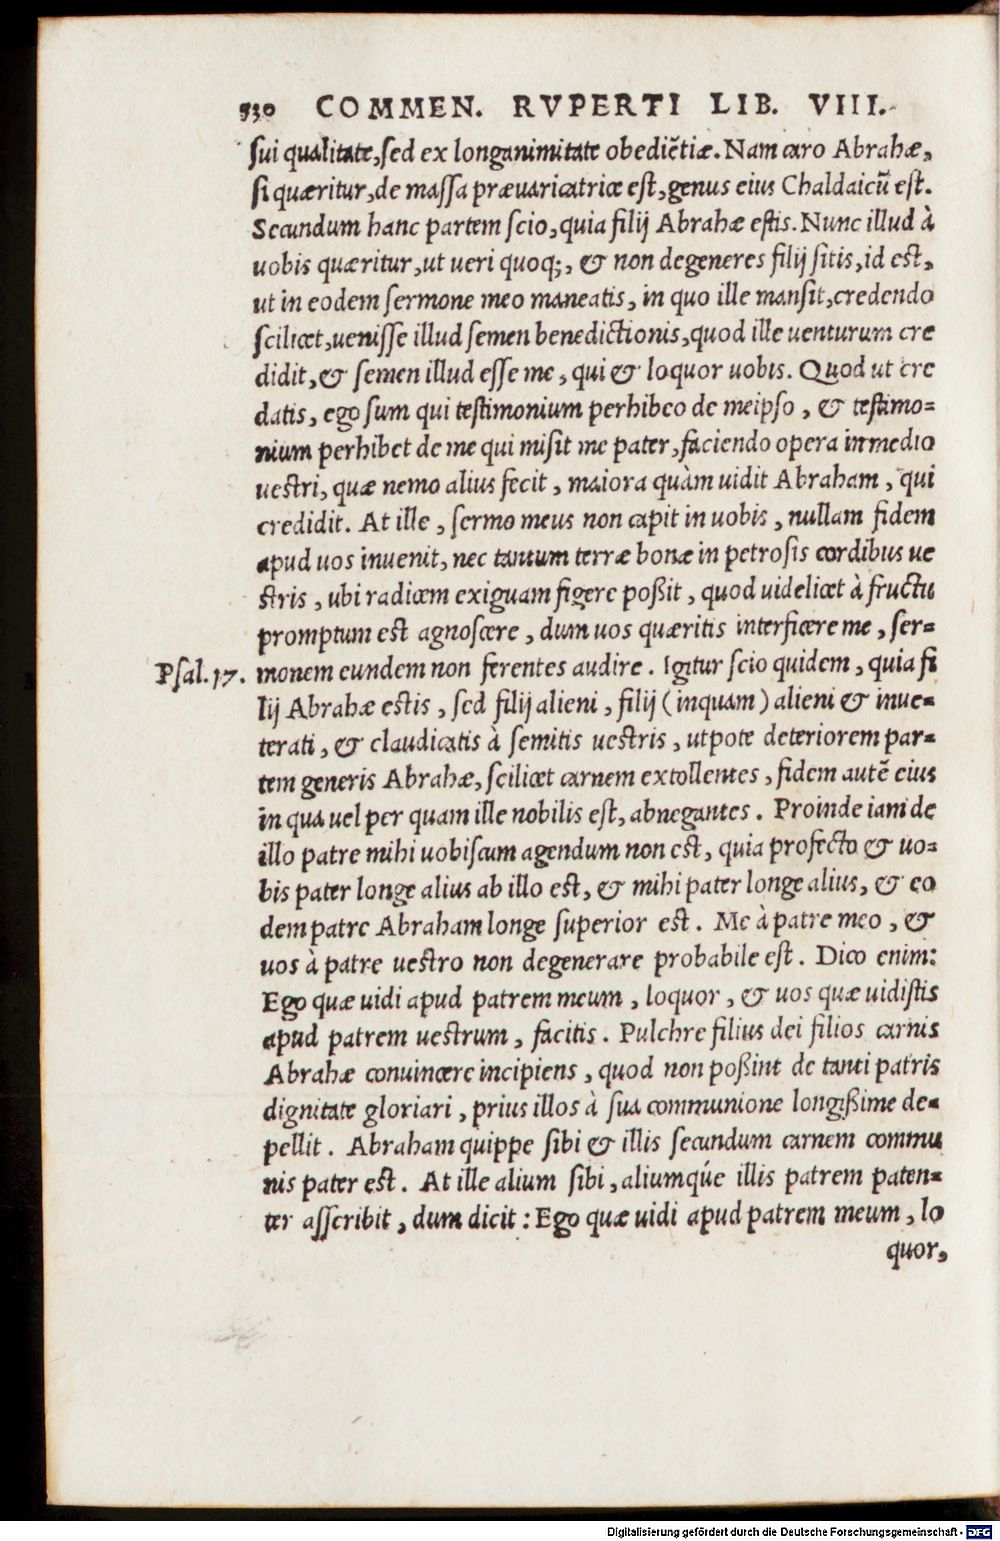 530 COMMEN. RVPERTI LIB. VIII.
sui qualitate, sed ex longanimitate obediẽtiæ. Nam caro Abrahæ,
si quæritur, de massa præuaricatrice est, genus eius Chaldaicũ est.
Secundum hanc partem scio, quia filij Abrahæ estis. Nunc illud à
uobis quæritur, ut ueri quoq;, & non degeneres filij sitis, id est,
ut in eodem sermone meo maneatis, in quo ille mansit, credendo
scilicet, uenisse illud semen benedictionis, quod ille uenturum cre
didit, & semen illud esse me, qui & loquor uobis. Quod ut cre
datis, ego sum qui testimonium perhibeo de meipso, & testimo=
nium perhibet de me qui misit me pater, faciendo opera in medio
uestri, quæ nemo alius fecit, maiora quàm uidit Abraham, qui
credidit. At ille, sermo meus non capit in uobis, nullam fidem
apud uos inuenit, nec tantum terræ bonæ in petrosis cordibus ue
stris, ubi radicem exiguam figere poßit, quod uidelicet à fructu
promptum est agnoscere, dum uos quæritis interficere me, ser=
Psal. 17. monem eundem non ferentes audire. Igitur scio quidem, quia fi
lij Abrahæ estis, sed filij alieni, filij (inquam) alieni & inue=
terati, & claudicatis à semitis uestris, utpote deteriorem par=
tem generis Abrahæ, scilicet carnem extollentes, fidem autẽ eius
in qua uel per quam ille nobilis est, abnegantes. Proinde iam de
illo patre mihi uobiscum agendum non est, quia profecto & uo=
bis pater longe alius ab illo est, & mihi pater longe alius, & eo
dem patre Abraham longe superior est. Me à patre meo, &
uos à patre uestro non degenerare probabile est. Dico enim:
Ego quæ uidi apud patrem meum, loquor, & uos quæ uidistis
apud patrem uestrum, facitis. Pulchre filius dei filios carnis
Abrahæ conuincere incipiens, quod non poßint de tanti patris
dignitate gloriari, prius illos à sua communione longißime de=
pellit. Abraham quippe sibi & illis secundum carnem commu
nis pater est. At ille alium sibi, aliumqúe illis patrem paten=
ter asscribit, dum dicit: Ego quæ uidi apud patrem meum, lo
quor,
Digitalisierung gefördert durch die Deutsche Forschungsgemeinschaft - DFG